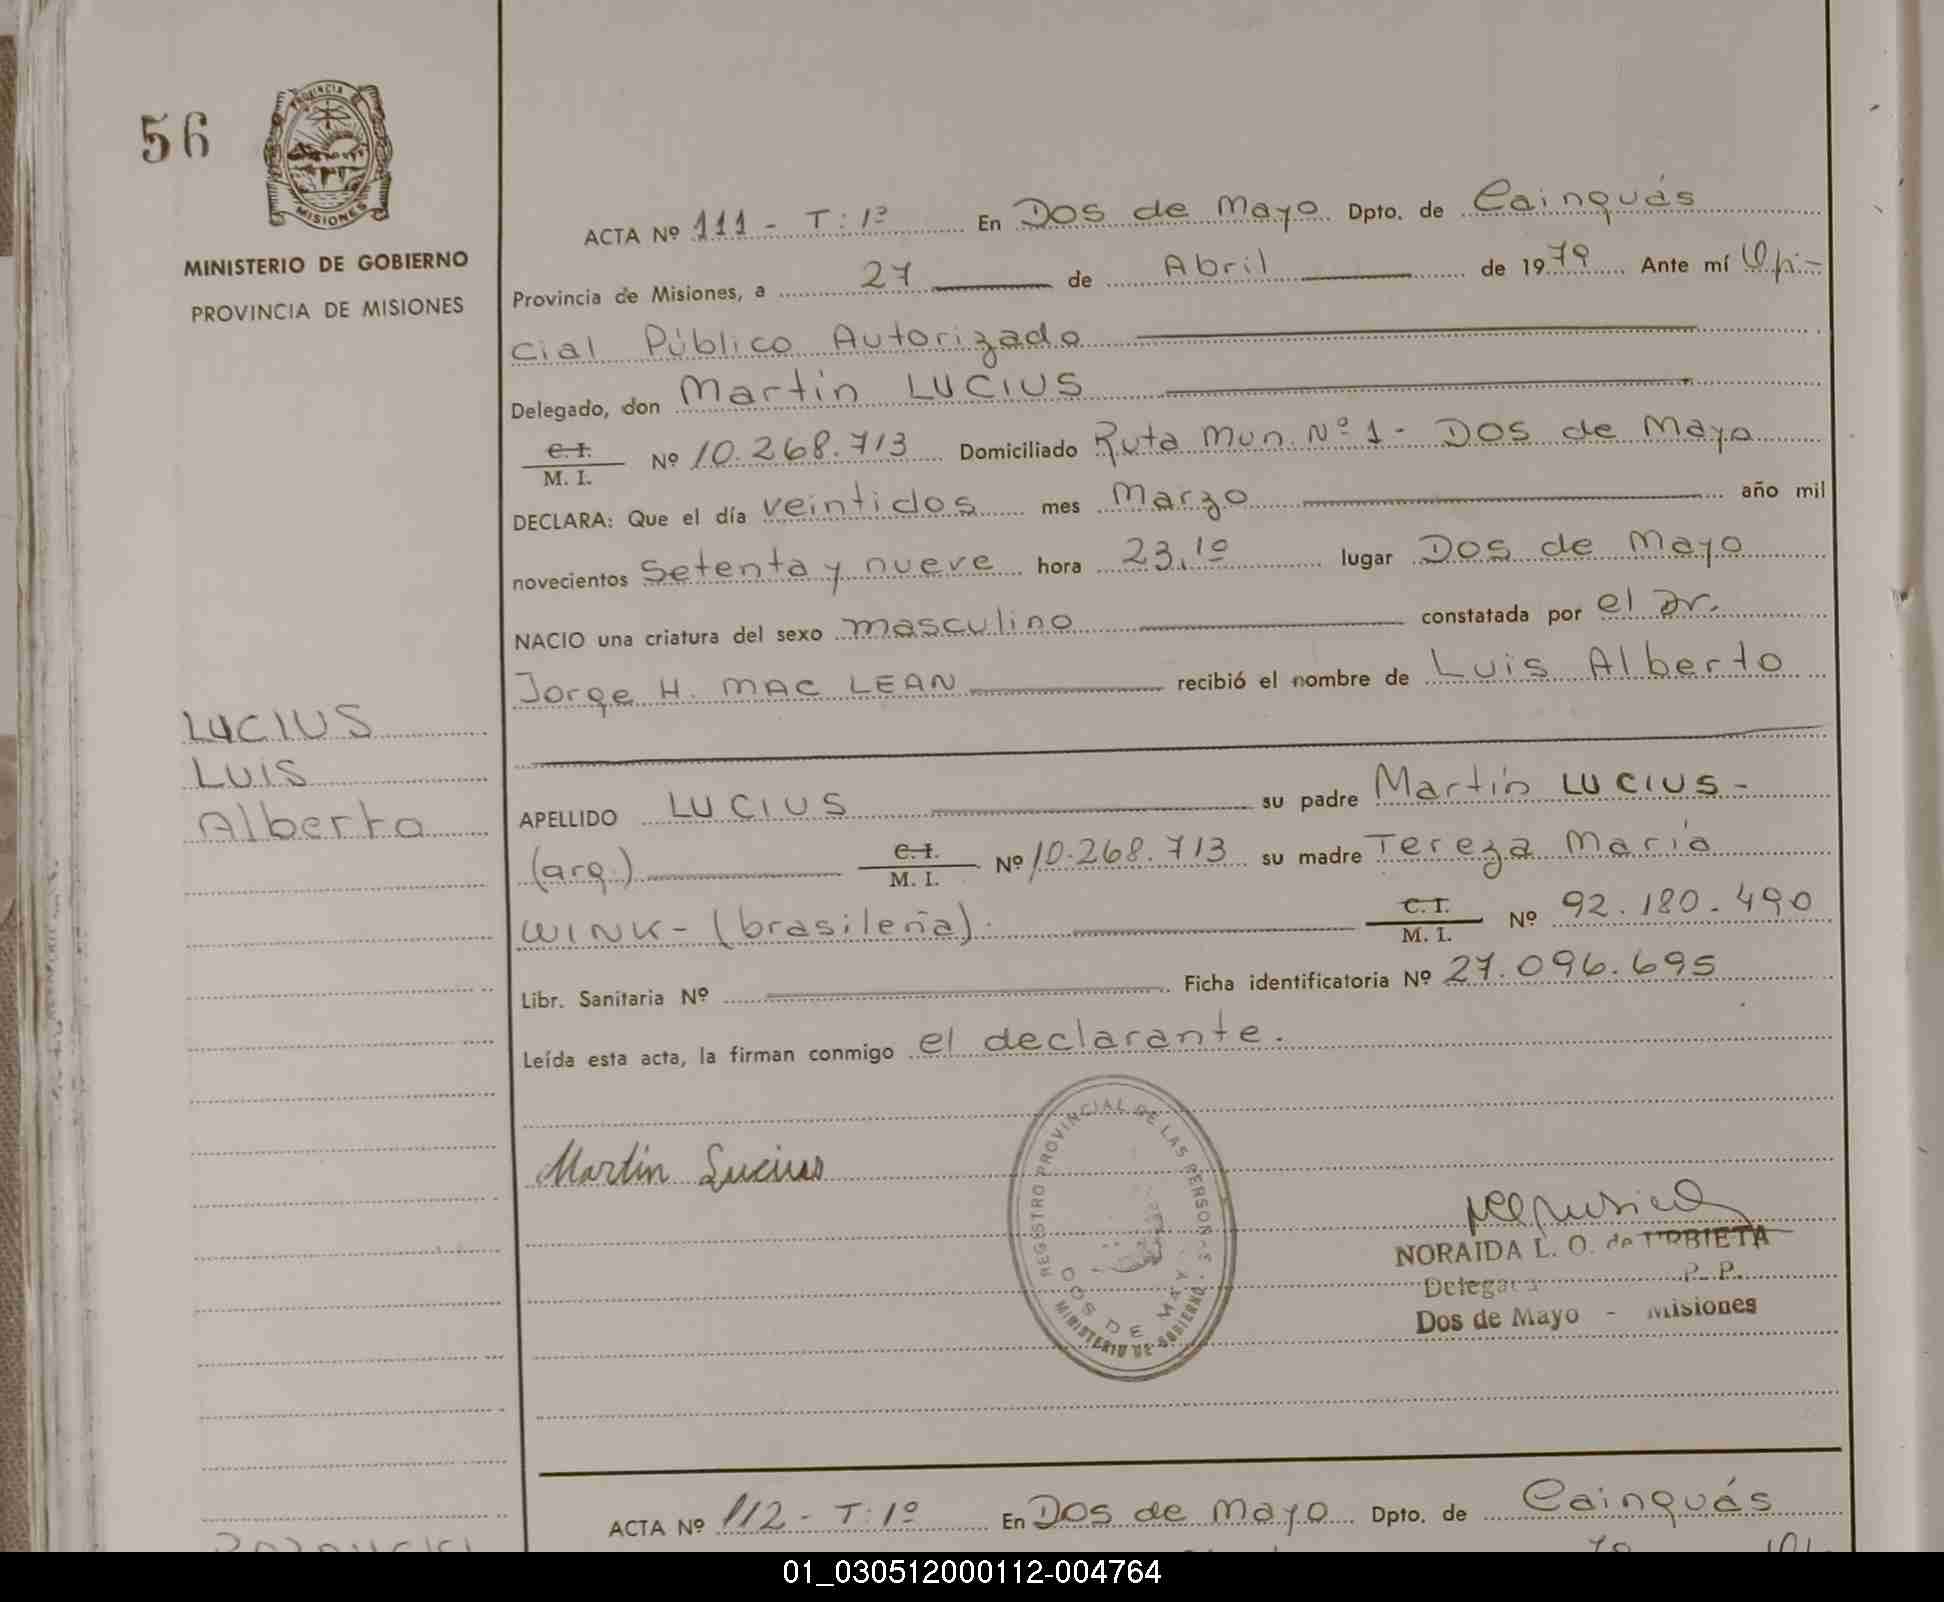 56
PROVINCIA DE
MISIONES
MINISTERIO DE GOBIERNO
PROVINCIA DE MISIONES
LUCIUS
LUIS
Alberto
ACTA Nº 111 - T: 1º En Dos de Mayo Dpto. de Cainguás
Provincia de Misiones, a 27 de Abril de 1979 Ante mí Ofi-
cial Público Autorizado
Delegado, don Martin LUCIUS
C. I.
M. I. Nº 10.268.713 Domiciliado Ruta Mun. Nº 1 - Dos de Mayo
DECLARA: Que el día veintidos mes Marzo año mil
novecientos setenta y nueve hora 23,10 lugar Dos de Mayo
NACIO una criatura del sexo masculino constatada por el Dr.
Jorge H. MAC LEAN recibió el nombre de Luis Alberto
APELLIDO LUCIUS su padre Martín LUCIUS -
(arg.) C. I. M. I. Nº 10.268.713 su madre Tereza María
WINK - (brasileña). C. I. M. I. Nº 92.180.490
Libr. Sanitaria Nº Ficha identificatoria Nº 27.096.695
Leída esta acta, la firman conmigo el declarante.
Martin Lucius
REGISTRO PROVINCIAL DE LAS PERSONAS
DOS DE MAYO
MINISTERIO DE GOBIERNO
NORAIDA L. O. de URBIETA
Delegada P. P.
Dos de Mayo - Misiones
ACTA Nº 112 - T: 1º En Dos de Mayo Dpto. de Cainguás
01_030512000112-004764